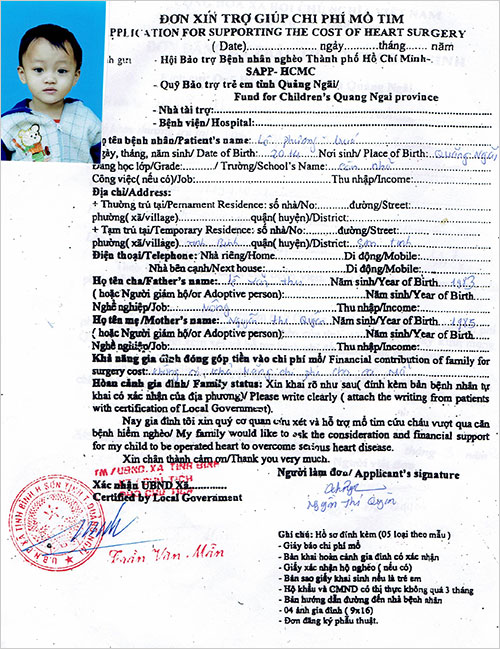 ĐƠN XIN TRỢ GIÚP CHI PHÍ MỔ TIM
PPLICATION FOR SUPPORTING THE COST OF HEART SURGERY
( Date)....................... ngày.............tháng....... năm
h gửi - Hội Bảo trợ Bệnh nhân nghèo Thành phố Hồ Chí Minh-
SAPP- HCMC
- Quỹ Bảo trợ trẻ em tỉnh Quảng Ngãi/
Fund for Children's Quang Ngai province
- Nhà tài trợ:
- Bệnh viện/ Hospital:
Họ tên bệnh nhân/Patient's name:
Ngày, tháng, năm sinh/ Date of Birth: Nơi sinh/ Place of Birth: Quảng Ngãi
Đang học lớp/Grade:........../ Trường/School's Name: Còn nhỏ
Công việc( nếu có)/Job: Thu nhập/Income:
Địa chỉ/Address:
+ Thường trú tại/Pernament Residence: số nhà/No:..........đường/Street:
phường( xã/village) quận( huyện)/District:
+ Tạm trú tại/Temporary Residence: số nhà/No:..........đường/Street:
phường( xã/village) Tịnh Bình quận( huyện)/District: Sơn Tịnh
Điện thoại/Telephone: Nhà riêng/Home Di động/Mobile:
Nhà bên cạnh/Next house:......: Di động/Mobile:
Họ tên cha/Father's name: Năm sinh/Year of Birth 1983
( hoặc Người giám hộ/or Adoptive person): Năm Sinh/Year of Birth
Nghề nghiệp/Job: nông Thu nhập/Income:
Họ tên mẹ/Mother's name: Nguyễn Thị Quyên Năm sinh/Year of Birth 1985
( hoặc Người giám hộ/or Adoptive person): Năm Sinh/Year of Birth
Nghề nghiệp/Job: Thu nhập/Income:
Khả năng gia đình đóng góp tiền vào chi phí mổ/ Financial contribution of family for
surgery cost: không có khả năng chi phí cho ca mổ
Hoàn cảnh gia đình/ Family status: Xin khai rõ như sau( đính kèm bản bệnh nhân tự
khai có xác nhận của địa phương)/ Please write clearly ( attach the writing from patients
with certification of Local Government).
Nay gia đình tôi xin quý cơ quan cứu xét và hỗ trợ mổ tim cứu cháu vượt qua căn
bệnh hiểm nghèo/ My family would like to ask the consideration and financial support
for my child to be operated heart to overcome serious heart disease.
Xin chân thành cảm ơn/Thank you very much.
TM/UBND.XÃ TỊNH BÌNH
CHỦ TỊCH
Xác nhận UBND Xã
Certified by Local Government
Trần Văn Mãn
Người làm đơn/ Applicant's signature
Nguyễn Thị Quyên
Ghi chú: Hồ sơ đính kèm (05 loại theo mẫu )
- Giấy báo chi phí mổ
- Bản khai hoàn cảnh gia đình có xác nhận
- Giấy xác nhận hộ nghèo ( nếu có)
- Bản sao giấy khai sinh nếu là trẻ em
- Hộ khẩu và CMND có thị thực không quá 3 tháng
- Bản hướng dẫn đường đến nhà bệnh nhân
- 04 ảnh gia đình ( 9x16)
- Đơn đăng ký phẫu thuật.